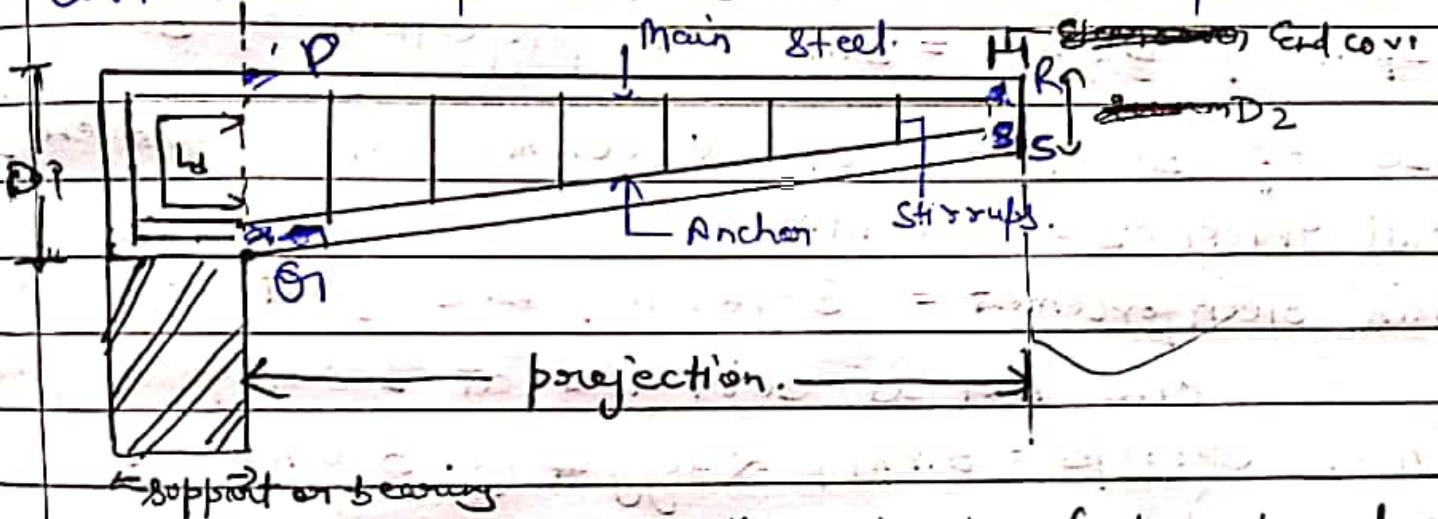 P
Main Steel.
End cov
R
D2
Ld
S
Anchor
Stirrups.
Q
projection.
support or bearing